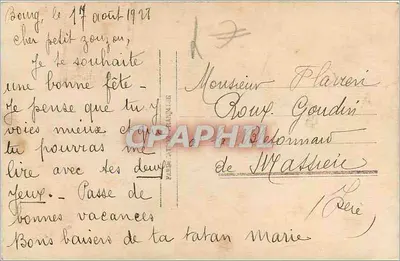 Bourg, le 17 août 1928
cher petit zouzou,
Je te souhaite
une bonne fête -
Je pense que tu y
vois mieux et que
tu pourras me
lire avec tes deux
yeux. - Passe de
bonnes vacances
Bons baisers de ta tatan Marie
Monsieur
Roux Goudin
de Massieu
(Isère)
CPAPHIL